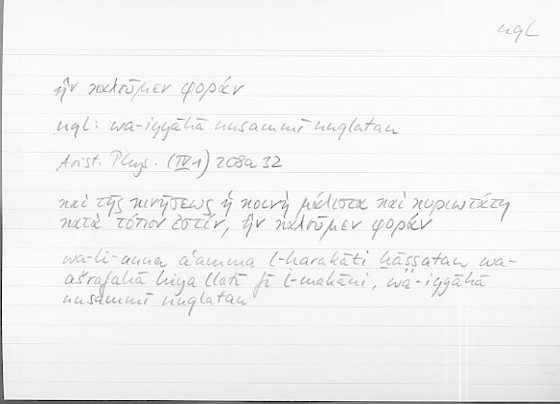 nqL
ἣν καλοῦμεν φοράν
nqL: wa-iyyāhā nusammī nuqlatan
Arist. Phys. (IV 1) 208a32
καὶ τῆς κινήσεως ἡ κοινὴ μάλιστα καὶ κυριωτάτη
κατὰ τόπον ἐστίν, ἣν καλοῦμεν φοράν
wa-li-anna aʿamma l-ḥarakāti ḫāṣṣatan wa-
ašrafahā hiya llatī fī l-makāni, wa-iyyāhā
nusammī nuqlatan